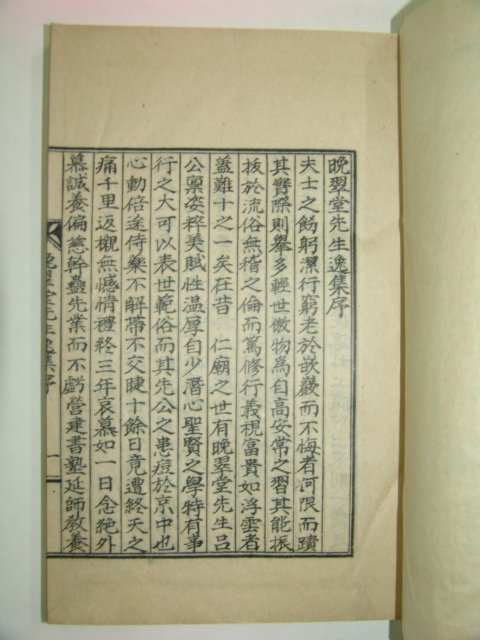 晚翠堂先生逸集序
夫士之飭躬潔行窮老於嵌巖而不悔者何限而蹟
其實際則擧多輕世傲物爲自高安常之習其能振
拔於流俗無稽之倫而篤修行義視富貴如浮雲者
蓋難十之一矣在昔 仁廟之世有晚翠堂先生呂
公禀姿粹美賦性温厚自少潛心聖賢之學特有事
行之大可以表世範俗而其先公之患痘於京中也
心動倍途侍藥不解帶不交睫十餘日竟遭終天之
痛千里返櫬無憾情禮終三年哀慕如一日念絶外
慕誠養偏慈幹蠱先業而不虧營建書塾延師敎養
晚翠堂先生逸集序 一